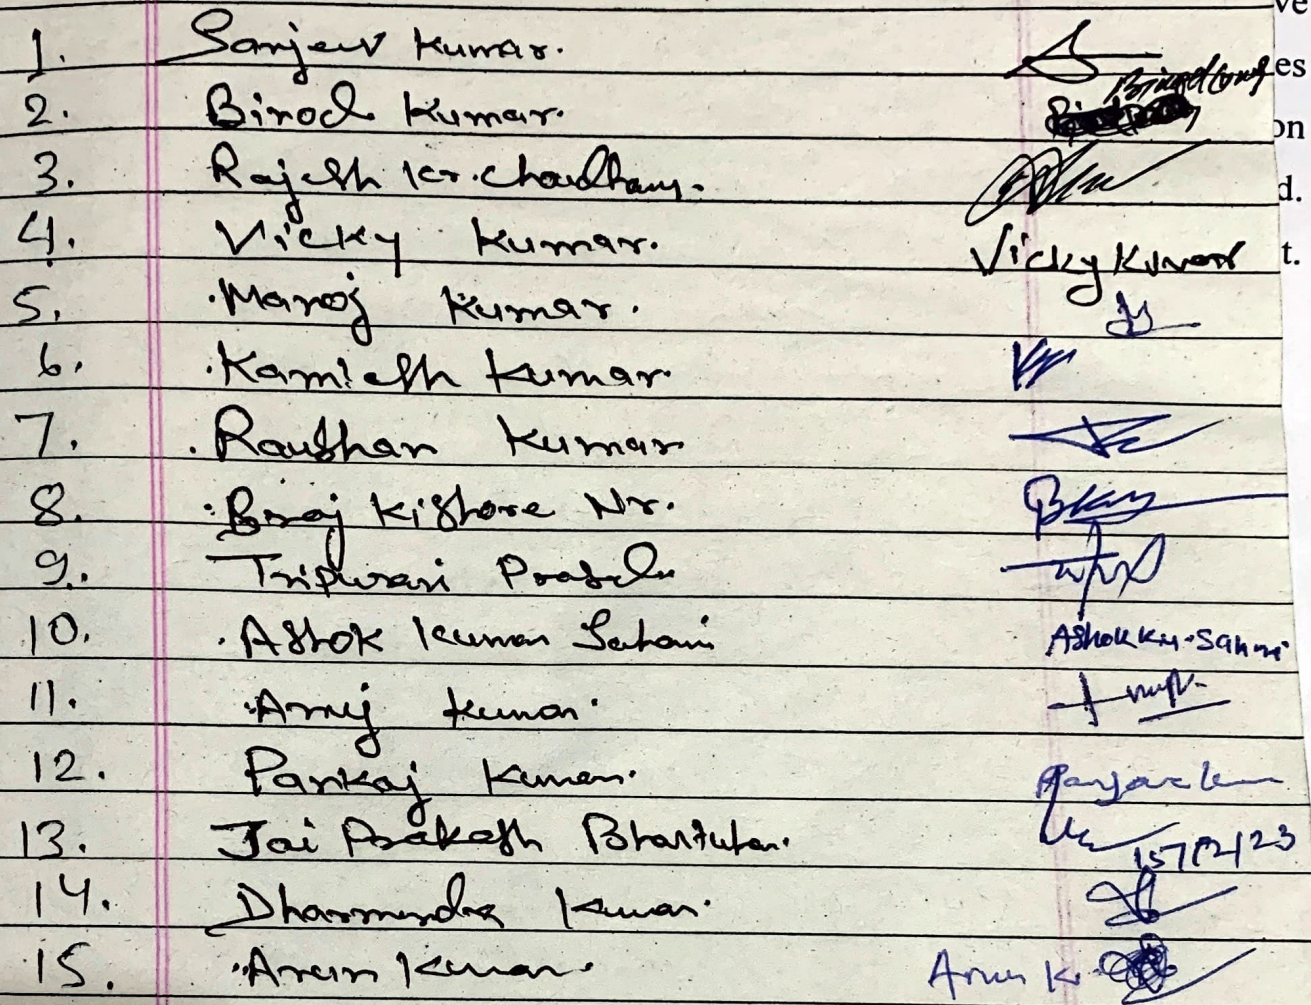 ve
1. Sanjeev Kumar.
es
2. Binod Kumar.
on
3. Rajesh Kr. Choudhary.
d.
4. Vicky Kumar. Vicky Kumar
t.
5. Manoj Kumar.
6. Kamlesh Kumar
7. Raushan Kumar
8. Braj Kishore Nr.
9. Tripurari Prasad
10. Ashok Kumar Sahani Ashok Kr. Sahni
11. Anuj Kumar
12. Pankaj Kumar.
13. Jai Prakash 15/12/23
14. Dharmendra Kumar
15. Arun Kumar. Arun K.